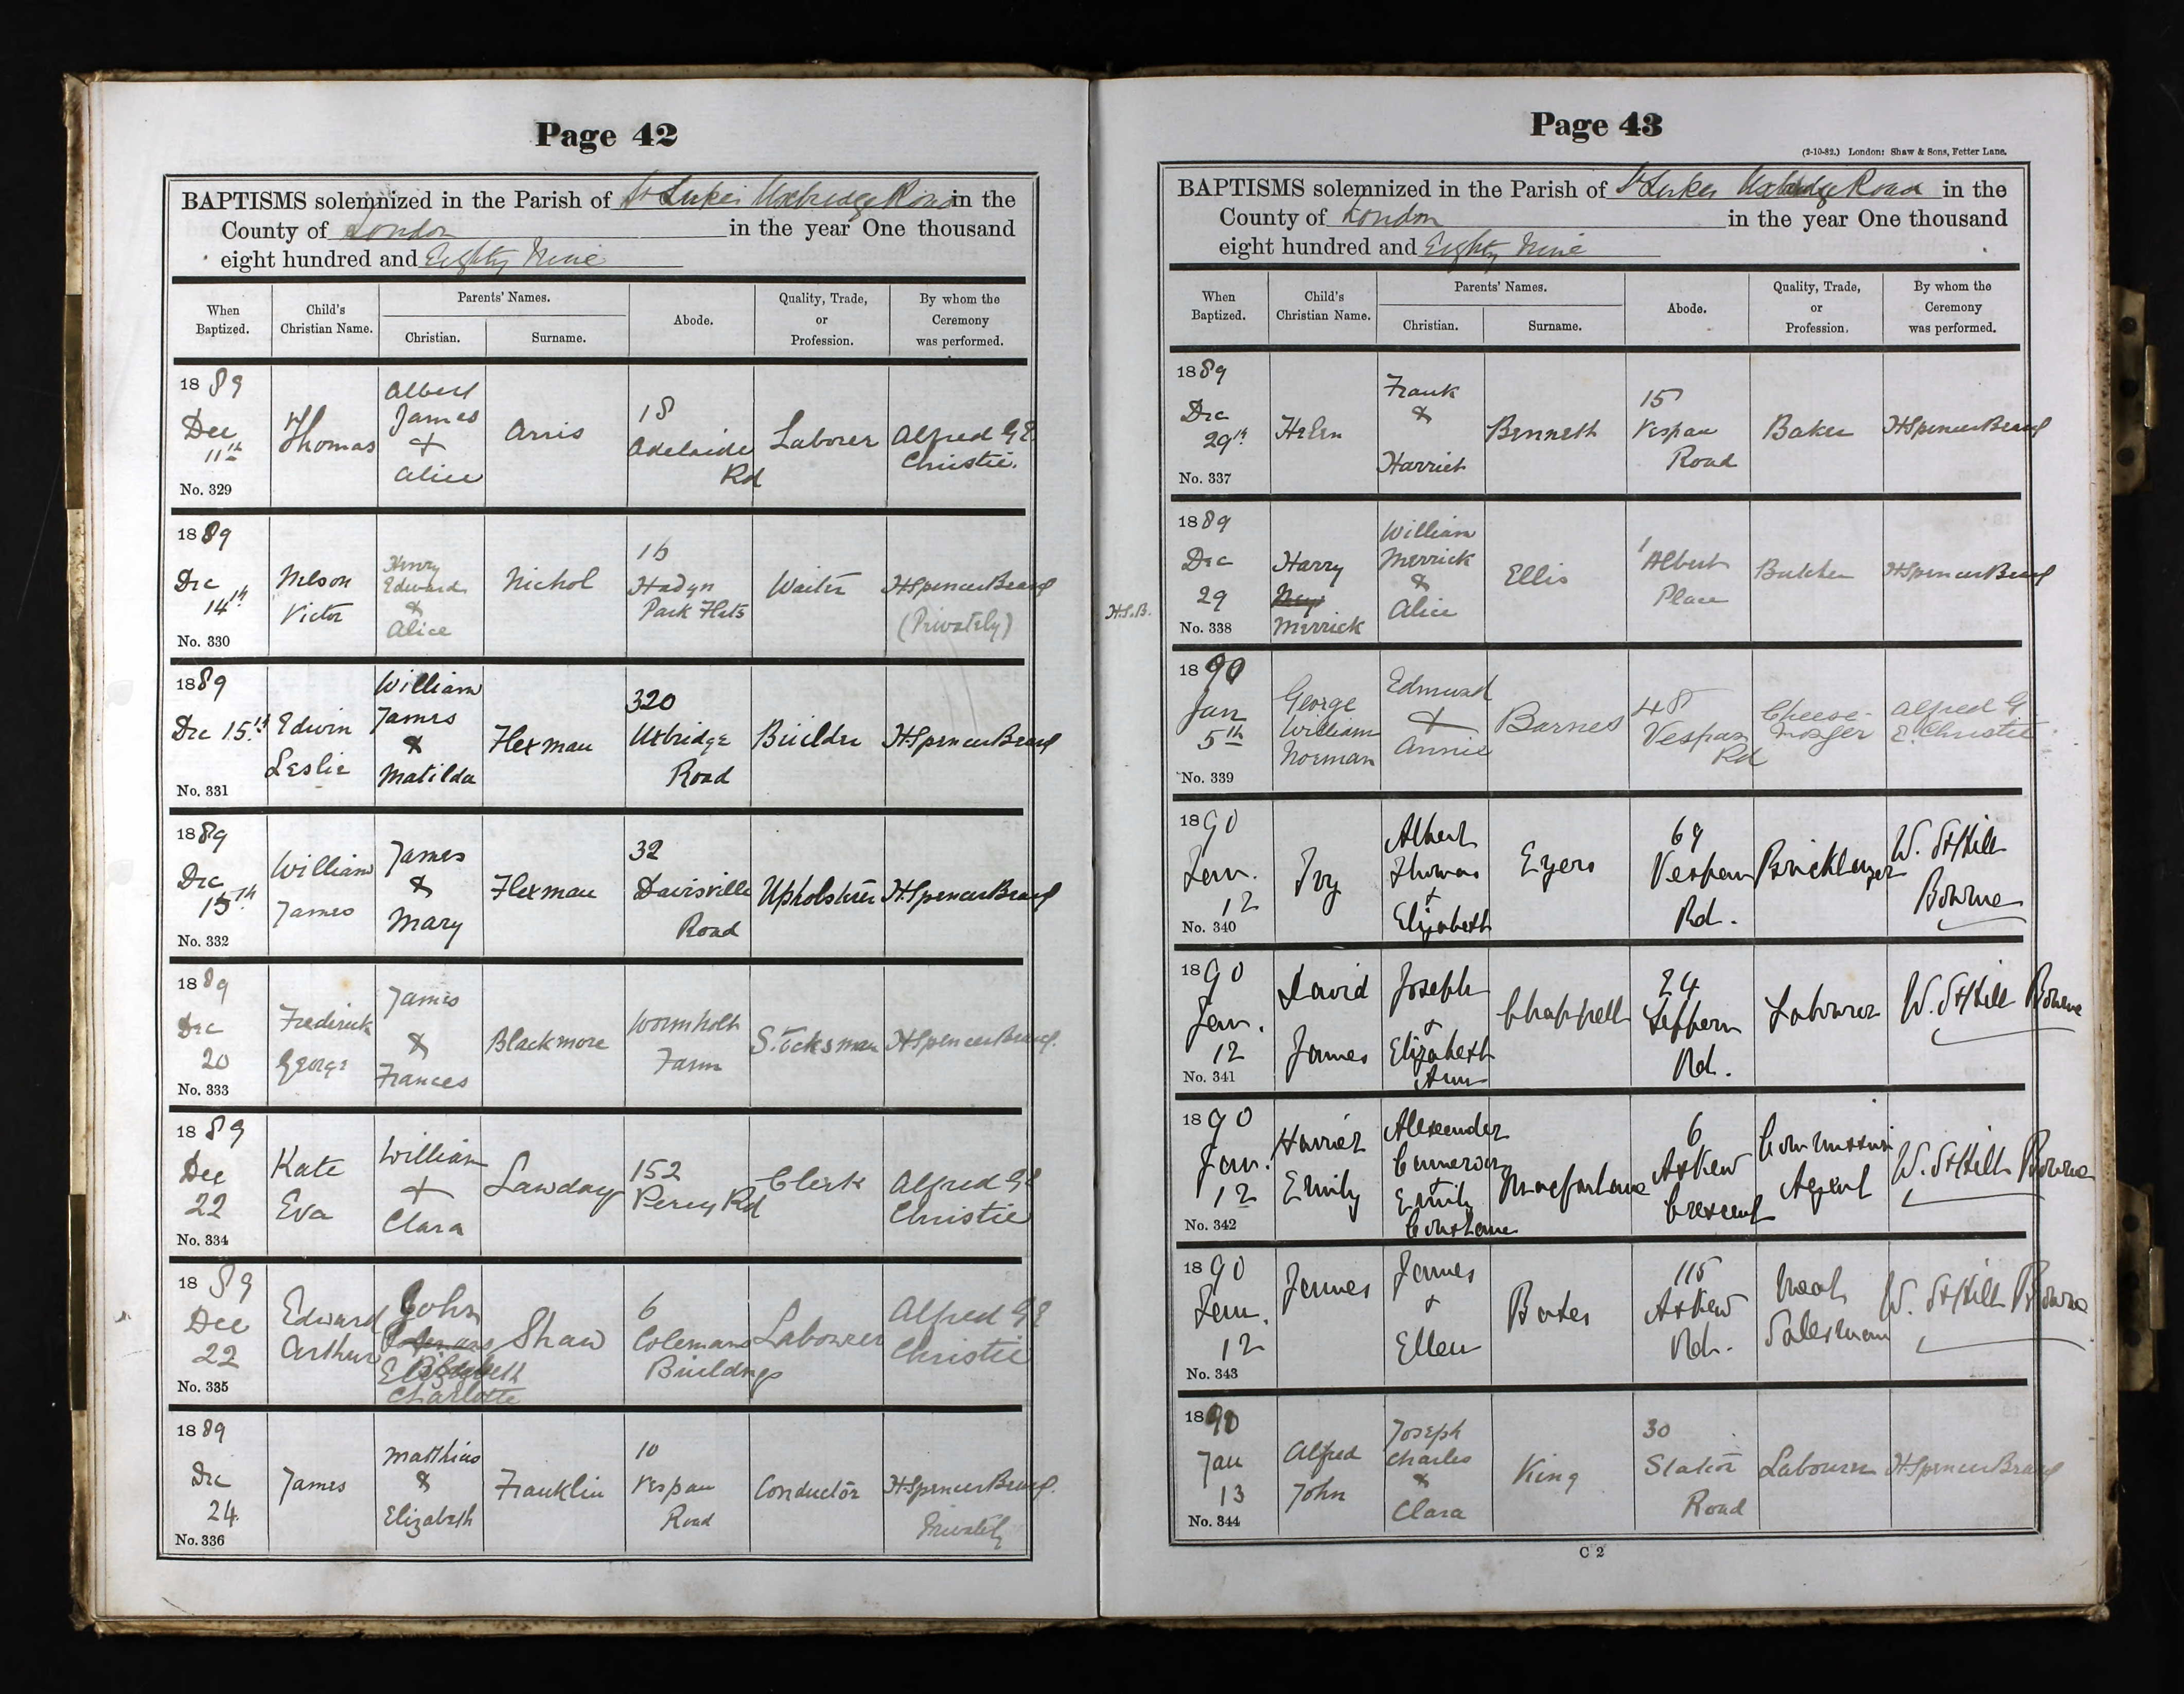 Page 42
BAPTISMS solemnized in the Parish of St Lukes Uxbridge Road in the
County of London in the year One thousand
eight hundred and Eighty Nine
When Baptized.
Child's Christian Name.
Parents' Names.
Christian.
Surname.
Abode.
Quality, Trade, or Profession.
By whom the Ceremony was performed.
1889
Dec
11th
No. 329
Thomas
Albert
James
+
Alice
Arris
18
Adelaide
Rd
Laborer
Alfred G E
Christie.
1889
Dec
14th
No. 330
Nelson
Victor
Henry
Edward
&
Alice
Nichol
16
Hadyn
Park Flats
Waiter
H Spencer
(Privately)
1889
Dec 15th
No. 331
Edwin
Leslie
William
James
&
Matilda
Flexman
320
Uxbridge
Road
Builder
H Spencer
1889
Dec
15th
No. 332
William
James
James
&
Mary
Flexman
32
Davisville
Road
Upholsterer
H Spencer
1889
Dec
20
No. 333
Frederick
George
James
&
Frances
Blackmore
Wormholt
Farm
Stocksman
H Spencer
1889
Dec
22
No. 334
Kate
Eva
William
+
Clara
Lawday
152
Percy Rd
Clerk
Alfred G E
Christie
1889
Dec
22
No. 335
Edward
Arthur
John
Elizabeth
Charlotte
Shaw
6
Colemans
Buildings
Labourer
Alfred G E
Christie
1889
Dec
24
No. 336
James
Matthias
&
Elizabeth
Franklin
10
Vespan
Road
Conductor
H Spencer
Privately
Page 43
(2-10-82.) London: Shaw & Sons, Fetter Lane.
BAPTISMS solemnized in the Parish of St Lukes Uxbridge Road in the
County of London in the year One thousand
eight hundred and Eighty Nine
When Baptized.
Child's Christian Name.
Parents' Names.
Christian.
Surname.
Abode.
Quality, Trade, or Profession.
By whom the Ceremony was performed.
1889
Dec
29th
No. 337
Helen
Frank
&
Harriet
Bennett
15
Vespan
Road
Baker
H Spencer
H.S.B.
1889
Dec
29
No. 338
Harry
Merrick
William
Merrick
&
Alice
Ellis
1
Albert
Place
Butcher
H Spencer
1890
Jan
5th
No. 339
George
William
Norman
Edmund
+
Annie
Barnes
48
Vespan
Rd
Cheese-
Alfred G
E. Christie
1890
Jan.
12
No. 340
Ivy
Albert
Thomas
+
Elizabeth
Eyers
Vespan
Rd.
Bricklayer
W. St Hill
Bourne
1890
Jan.
12
No. 341
David
James
Joseph
+
Elizabeth
Ann
Chappell
24
Rd.
Labourer
W. St Hill Bourne
1890
Jan.
12
No. 342
Harriet
Emily
Alexander
Cameron
+
Emily
Constance
Macfarlane
6
Askew
Crescent
Commission
Agent
W. St Hill Bourne
1890
Jan.
12
No. 343
James
James
+
Ellen
Bates
115
Askew
Rd.
Meat
Salesman
W. St Hill Bourne
1890
Jan
13
No. 344
Alfred
John
Joseph
Charles
&
Clara
King
30
Station
Road
Labourer
H Spencer
C 2